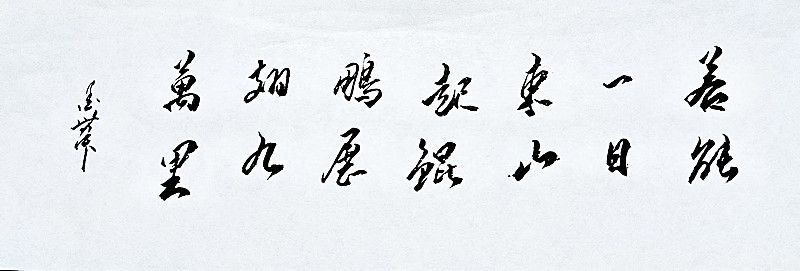 若能
一日
東山
起鯤
鵬展
翅九
萬里